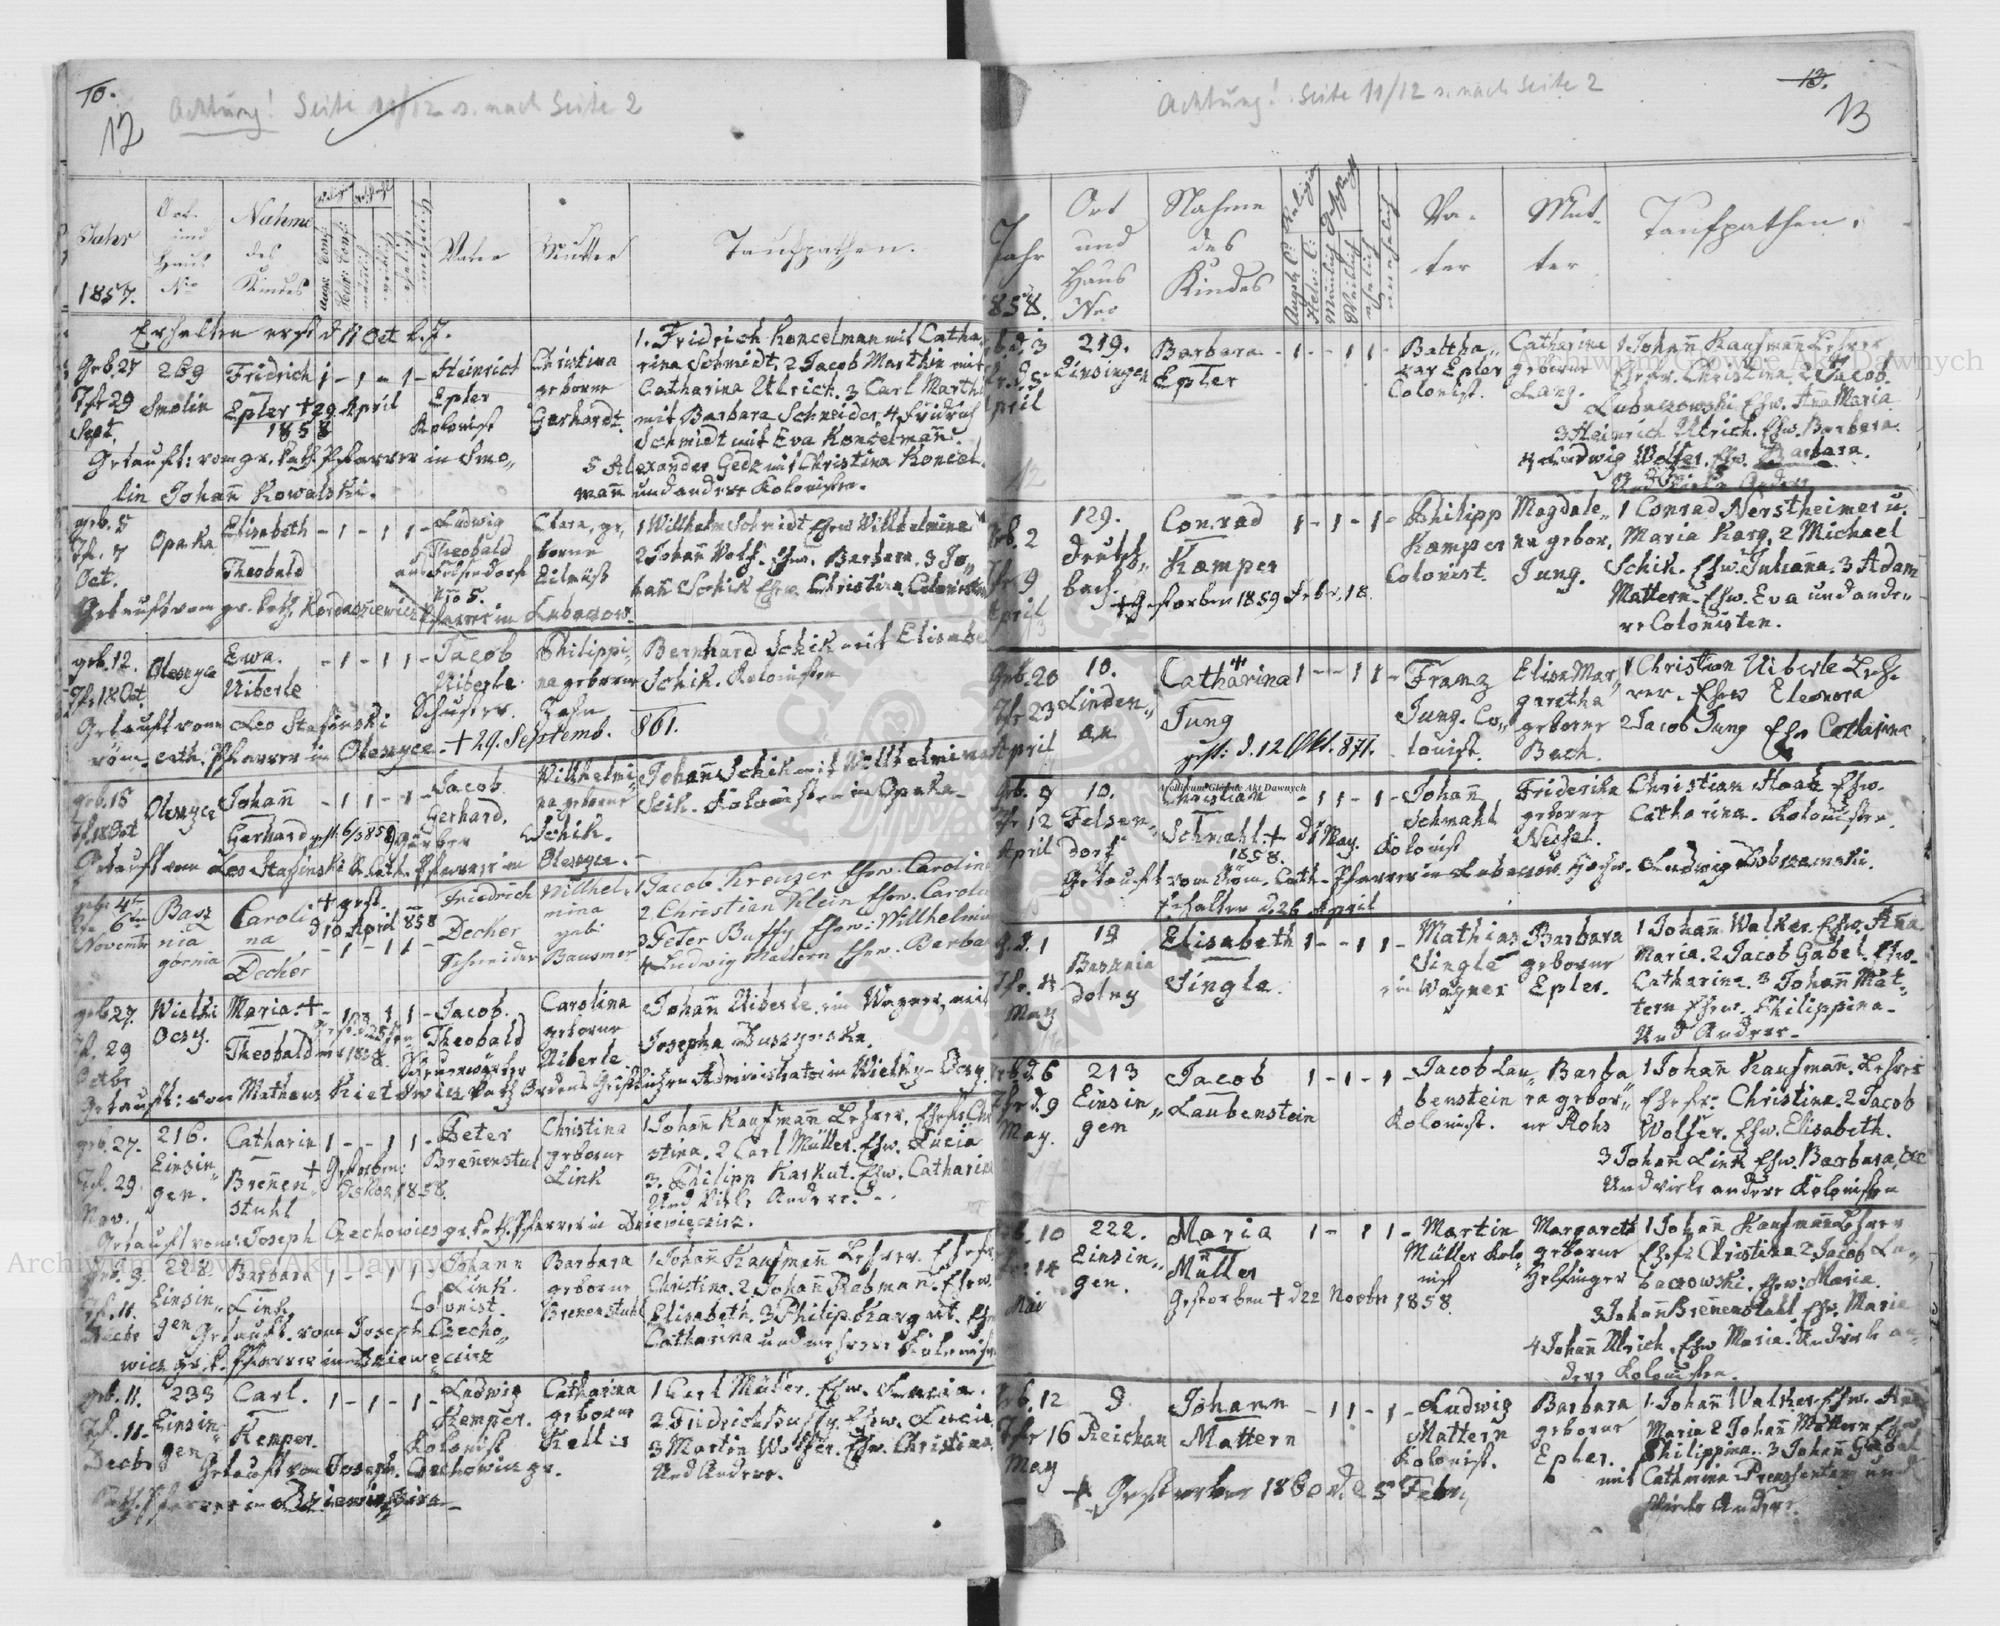 10.
12
Achtung! Seite 11/12 s. nach Seite 2
Jahr
1857.
Ort
und
Haus
Nro
Nahme
des
Kindes
Vater
Mutter
Taufpathen.
Erhalten erst d 11 Oct l. J.
Geb. 27
Tf 29
Sept.
269
Smolin
Fridrich 1 - 1 - 1 -
Epler + 29 April
1858
Heinrich
Epler
Kolonist
Christina
geborne
Gerhardt.
1. Fridrich Koncelman mit Catha,
rina Schmidt, 2 Jacob Marthin mit
Catharina Ulrich. 3 Carl Marth
mit Barbara Schneider, 4 Fridrich
Schmidt mit Eva Konzelmann.
5 Alexander Gedz mit Christina Koncel
mann und andere Kolonisten.
Getauft: vom gr. kath. Pfarrer in Smo,,
lin Johann Kowalski.
geb. 5
Tf. 7
Oct.
Opaka
Elisabeth - 1 - 1 1 -
Theobald
Ludwig
Theobald
aus Felsendorf
Nro 5.
Clara, ge,
borne
1 Willhelm Schmidt Ehew Willhelmine
2 Johann Wolf. Ehew. Barbara. 3 Jo,,
han Schik Ehew. Christina, Colonisten
Getauft vom gr. kath. Kordasiewicz Pfarrer in Lubaczow.
geb. 12.
Tf. 18 Oct.
Olesyce
Ewa. - 1 - 1 1 -
Uiberle
Jacob
Uiberle
Schuster.
Philippi,,
na geborne
Bernhard Schik mit Elisabe
Schik. Kolonisten
Getauft vom Leo Stasinski
röm. cath. Pfarrer in Olesyce - + 29. Septemb. 861.
geb. 15
Tf. 18 Oct
Olesyce
Johann - 1 1 - 1 -
Gerhard gest 6/3 859
Jacob
Gerhard.
Gärber
Willhelmi,,
na geborne
Schik.
Johann Schik mit Willhelmina
Seik. Kolonisten in Opaka.
Getauft vom Leo Stasinski R. Cath. Pfarrer in Olesyce. -
geb. 4te
Tf 6ten
Novembr
Basz
nia
gornia
Caroli. + gest.
na d 10 April 858
Decker - 1 - 1 1 -
Friedrich
Decker
Schneider
Willhel,
mina
geb:
Bausmer
1 Jacob Kreuzer Ehew. Carolina
2 Christian Klein Ehew. Carolin
3 Peter Buffy Ehew: Willhelmin
4 Ludwig Mattern Ehew. Barbar
geb 27.
Tf. 29
Octbr
Wielki
Oczy.
Maria. + - 1 - 1 1 -
Theobald
Jacob.
Theobald
Carolina
geborne
Uiberle
Johann Uiberle. ein Wagner, mit
Josepha Buszynska.
Getauft: von Matheus Kietowicz kath Ordens Geistlichen Administrator in Wielky - Oczy.
geb. 27.
Tf. 29.
Nov.
216.
Einsin,,
gen.
Catharin 1 - - 1 1 -
Brenen,, + Gestorben:
stuhl
Peter
Brenenstul
Christina
geborne
Link
1 Johann Kaufmann Lehrer. Ehefr Chri
stina. 2 Carl Müller. Ehw. Lucia
3. Philipp Karkut. Ehw. Catharina
Und Viele Andere. -
Getauft vom: Joseph Czechowicz gr. kath. Pfarrer in Dziewiecirz.
geb. 9.
Tf. 11.
Decbr
228.
Einsin,,
gen
Barbara 1 - - 1 1 -
Link
Johann
Link.
Colonist.
Barbara
geborne
Brenenstuhl
1 Johann Kaufmann Lehrer. Ehefr
Christina. 2 Johann Rebman. Ehew.
Elisabeth. 3 Philip. Kargut. Ehe
Catharina und mehrere Kolonisten
Getauft. vom Joseph Czecho,,
wicz gr. k. Pfarrer in Dziewecirz
geb. 11.
Tf. 11.
Decbr
233
Einsin,,
gen
Carl. 1 - 1 - 1 -
Kemper.
Ludwig
Kemper.
Kolonist
Catharina
geborne
Kellis
1 Carl Müller. Ehw. Lucia.
2 Fridrich Buffy, Ehew. Lucia
3 Martin Wolfer. Ehw. Christina,
Und Andere.
Getauft von Joseph. Czechowicz gr.
Kath. Pfarrer in Dziewieczirz
13.
13
Achtung! Seite 11/12 s. nach Seite 2
Jahr
858.
Ort
und
Haus
Nro
Nahme
des
Kindes
Augsb. C:
Helv: C:
Männlich
Weiblich
ehelich
unehelich
Religion
Va-
ter
Mut-
ter
Taufpathen.
219.
Einsingen
April
Barbara - 1 - - 1 1 -
Epler
Baltha,,
zar Epler
Colonist.
Catharina
geborne
Lang.
1 Johann Kaufmann Lehrer
Ehew. Christina, 2 Jacob.
Lubaczowski Ehw. Ana Maria
3 Heinrich Ulrich. Ehw. Barbera
4 Ludwig Wolfer. Ehw. Barbara.
Und Viele Andere
Geb. 2
Tfr 9
April
129.
Deutsch,,
bach.
Conrad 1 - 1 - 1 -
Kæmper
+ Gestorben 1859 Febr. 18.
Philipp
Kæmper
Colonist.
Magdale,,
na gebor,
Jung.
1 Conrad Nerstheimer u.
Maria Karg, 2 Michael
Schik. Ehw. Juliana. 3 Adam
Mattern. Ehw. Eva und ande,,
re Colonisten.
Geb. 20
Tfr 23
April
10.
Linden,,
au
Catharina 1 - - 1 1 -
Jung
gest: d. 12 Okt. 871.
Franz
Jung. Co,,
lonist.
Elisa Mar,,
garetha
geborne
Bach.
1 Christian Uiberle Leh,
rer. Ehew Eleonora
2 Jacob Jung Ehw Catharina
Geb. 9
Tfr 12
April
10.
Felsen,,
dorf
Christian - 1 1 - 1 -
Schmahl. + d 1 May.
1858.
Johann
Schmahl
Kolonist
Friderika
geborne
Christian Haab Ehw.
Catharina. Kolonisten.
Getauft vom Röm. Cath. Pfarrer in Lubaczow. Hochw. Ludwig Dobrzanski.
Erhalten d. 26 April
G. d. 1
Tfr. 4
May
19
Basznia
Dolny
Elisabeth 1 - - 1 1 -
Singla.
Mathias
Singla
ein Wagner
Barbara
geborne
Epler.
1 Johann Walker. Ehw. Ana
Maria. 2 Jacob Gabel. Ehw.
Catharina. 3 Johann Mat,,
tern Ehew. Philippina.
Und Andere.
Geb d. 6
Tfr d. 9
May.
213
Einsin,,
gen
Jacob 1 - 1 - 1 -
Laubenstein
Jacob Lau,,
benstein
Kolonist.
Barba
ra gebor,,
ne Rohs
1 Johann Kaufmann. Lehrer
Ehefr: Christina. 2 Jacob
Wolfer. Ehw. Elisabeth.
3 Johann Link Ehw. Barbara, etc
Und viele andere Kolonisten
Geb. 10
Tfr. 14
Mai
222.
Einsin,,
gen.
Maria 1 - - 1 1 -
Müller
Gestorben + d 22 Novbr 1858.
Martin
Müller Kolo,
nist
Margareth
geborne
Helfinger
1 Johann Kaufmann Lehrer
Ehefr Christina 2 Jacob Lu,,
baczowski. Ehew: Maria.
3 Johann Brenenstuhl Ehw. Maria
4 Johann Ulrich. Ehw Maria. Und viele an,,
dere Kolonisten.
Geb. 12
Tfr 16
May
9
Reichau
Johann - 1 1 - 1 -
Mattern
Ludwig
Mattern
Kolonist.
Barbara
geborne
Epler.
1. Johann Walker Ehw. Ana
Maria 2 Johann Mattern Ehw
Philippina. 3 Johann Gabel
mit Catharina
Viele Andere.
+ Gestorben 1860 d. 5 Febr,
Archiwum Główne Akt Dawnych
Archiwum Główne Akt Dawnych
Archiwum Główne Akt Dawnych